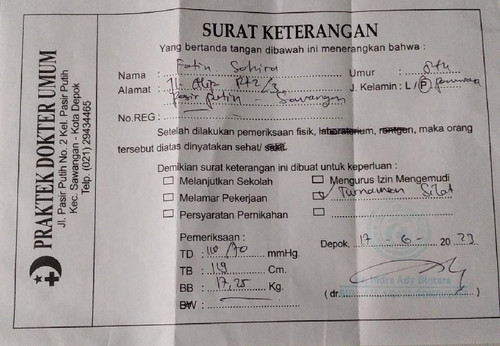 PRAKTEK DOKTER UMUM
Jl. Pasir Putih No. 2 Kel. Pasir Putih
Kec. Sawangan - Kota Depok
Telp. (021) 29434465
SURAT KETERANGAN
Yang bertanda tangan dibawah ini menerangkan bahwa :
Nama : Fatin Sahira Umur :
Alamat : Jl. Rt2/3, J. Kelamin : L / P
Pasir putih - Sawangan
No.REG :
Setelah dilakukan pemeriksaan fisik, laboratorium, rontgen, maka orang
tersebut diatas dinyatakan sehat/ sakit
Demikian surat keterangan ini dibuat untuk keperluan :
Melanjutkan Sekolah Mengurus Izin Mengemudi
Melamar Pekerjaan Turnamen Silat
Persyaratan Pernikahan
Pemeriksaan :
TD : 110/70 mmHg. Depok, 17 - 6 - 20 23
TB : 119 Cm.
BB : 17,25 Kg.
BW : (dr. )